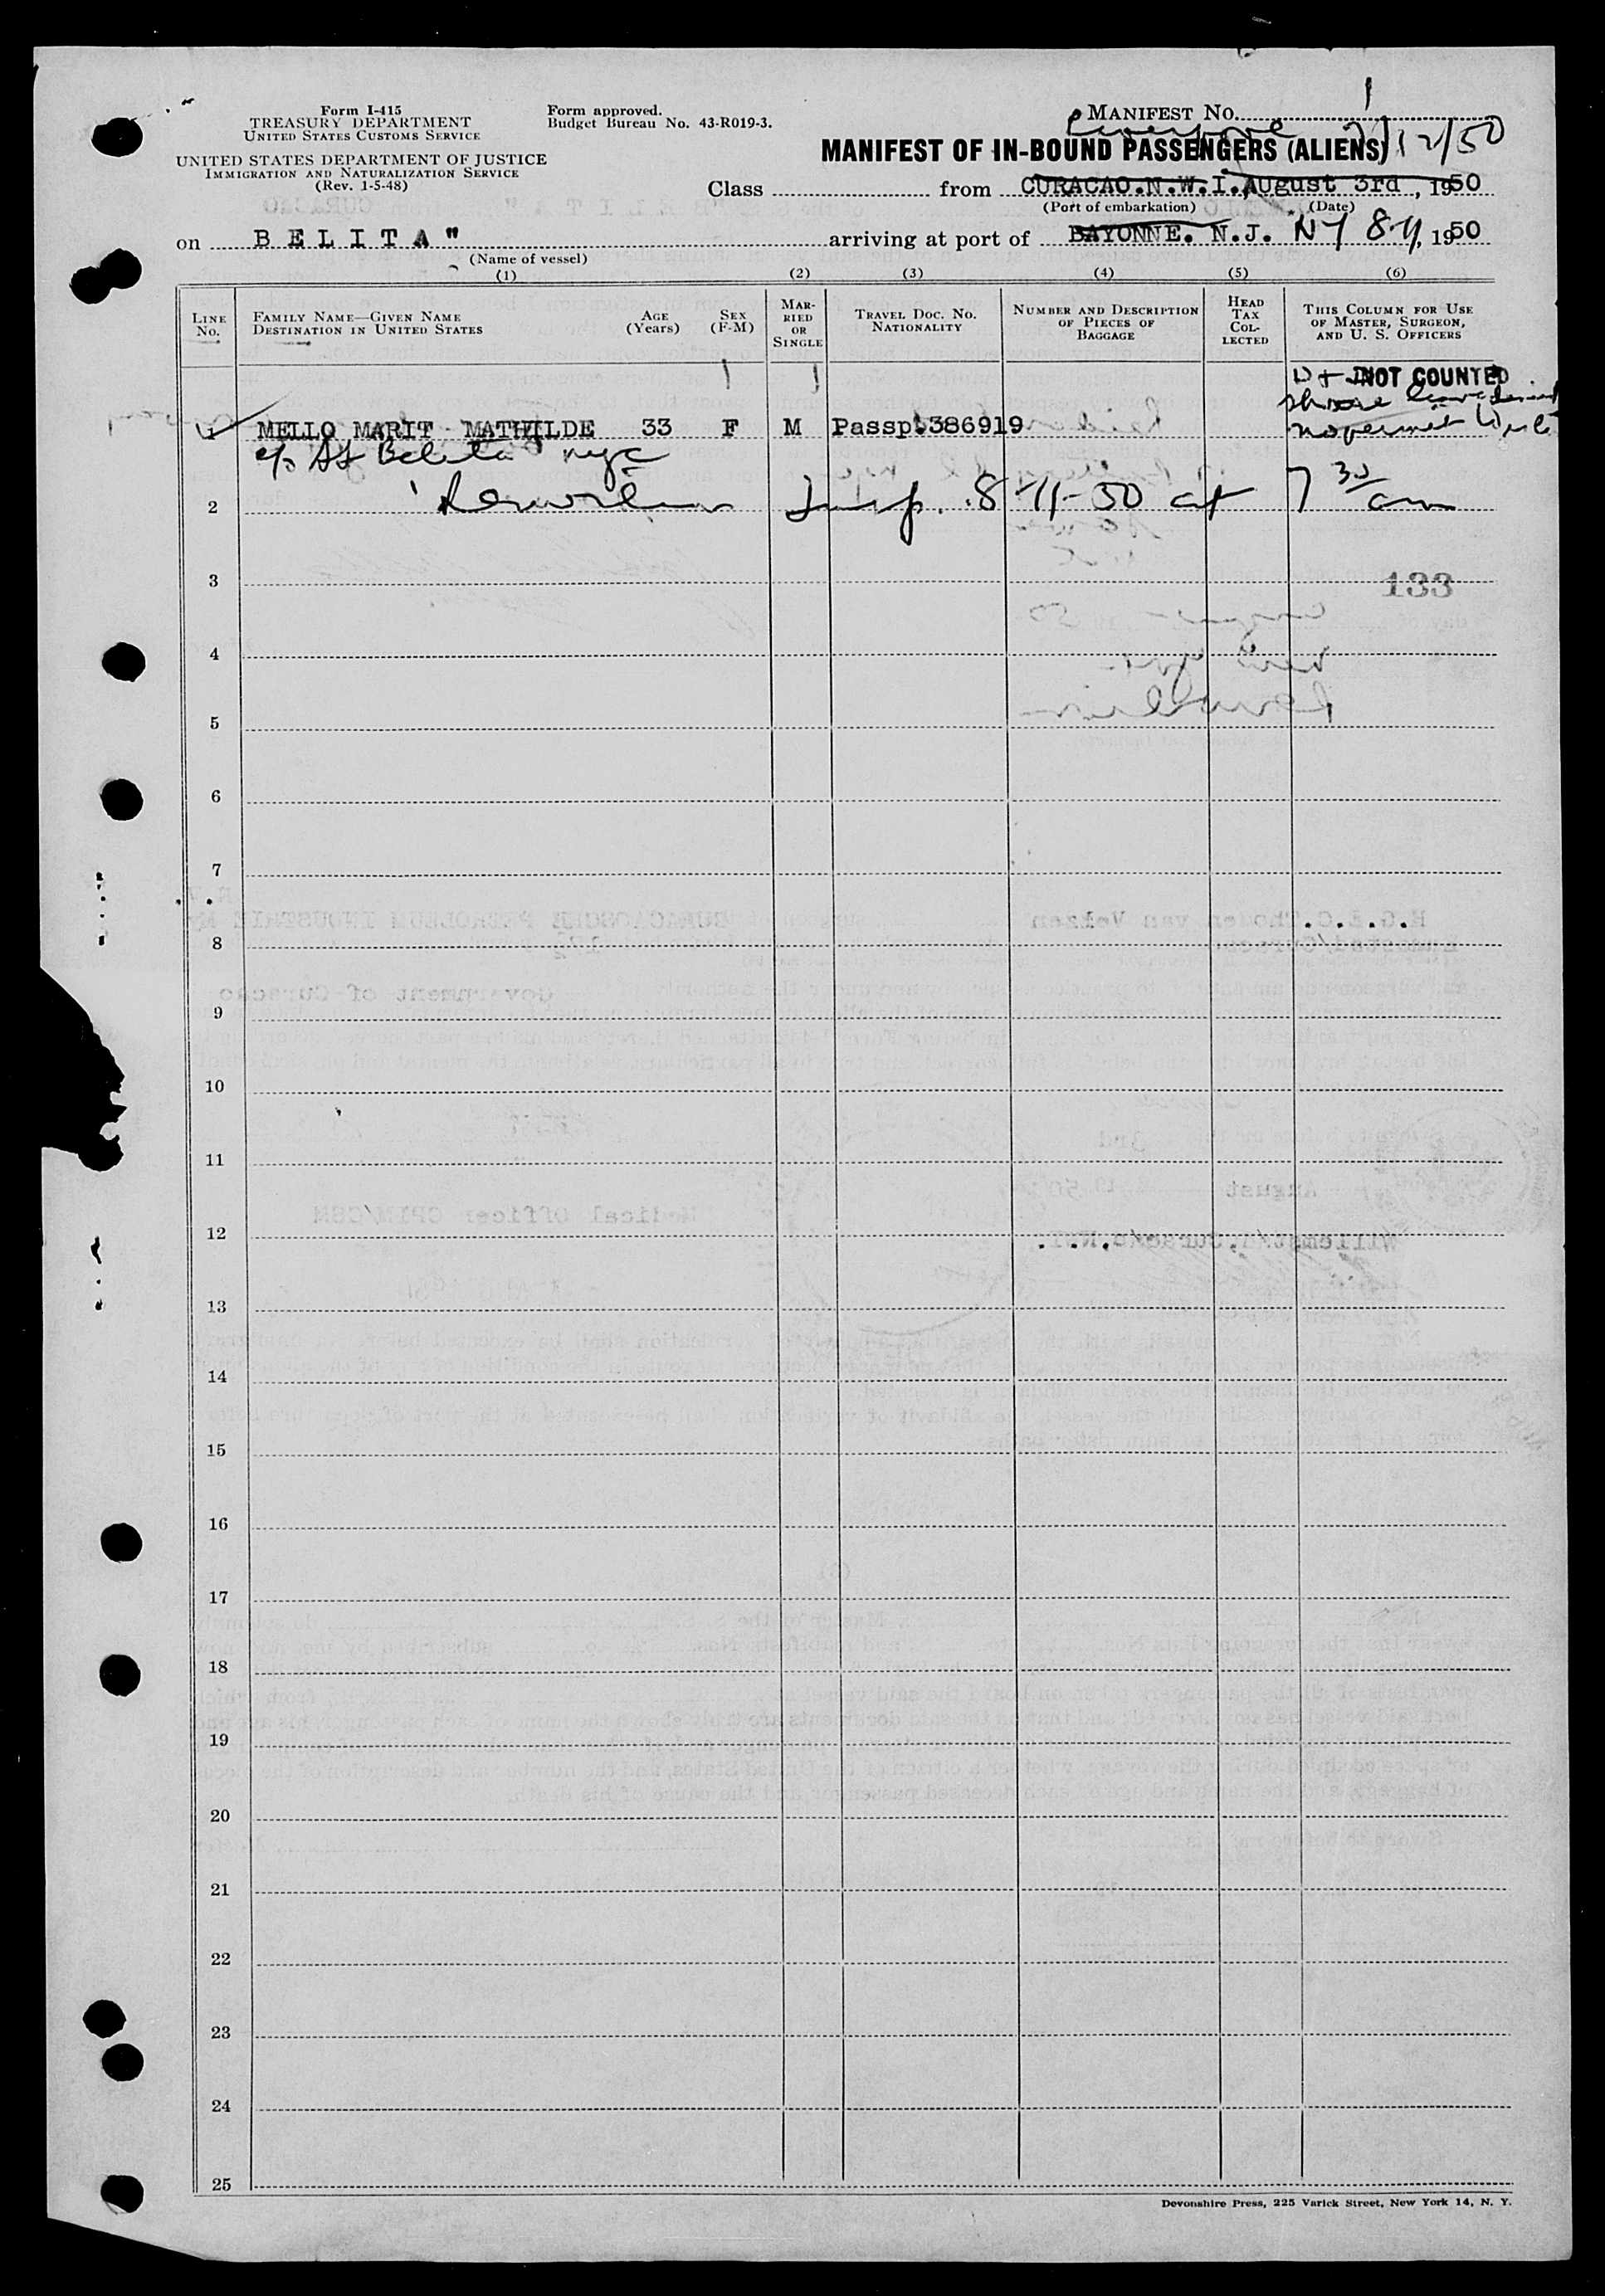 Form I-415
TREASURY DEPARTMENT
UNITED STATES CUSTOMS SERVICE
UNITED STATES DEPARTMENT OF JUSTICE
IMMIGRATION AND NATURALIZATION SERVICE
(Rev. 1-5-48)
Form approved.
Budget Bureau No. 43-R019-3.
MANIFEST No. 1
MANIFEST OF IN-BOUND PASSENGERS (ALIENS) 7/12/50
Class from CURACAO.N.W.I., August 3rd, 1950
(Port of embarkation) (Date)
on BELITA" arriving at port of BAYONNE. N.J. NY 8-11, 1950
(Name of vessel)
(1) (2) (3) (4) (5) (6)
LINE No.
FAMILY NAME—GIVEN NAME
DESTINATION IN UNITED STATES
AGE (Years)
SEX (F-M)
MARRIED OR SINGLE
TRAVEL DOC. NO.
NATIONALITY
NUMBER AND DESCRIPTION OF PIECES OF BAGGAGE
HEAD TAX COLLECTED
THIS COLUMN FOR USE OF MASTER, SURGEON, AND U. S. OFFICERS
NOT COUNTED
shore leave denied
no permit
1 MELLO MARIT MATHILDE 33 F M Passp.386919
c/o SS Belita nyc
2 Insp. 8-11-50 at 7 30/am
3 133
4
5
6
7
8
9
10
11
12
13
14
15
16
17
18
19
20
21
22
23
24
25
Devonshire Press, 225 Varick Street, New York 14, N. Y.